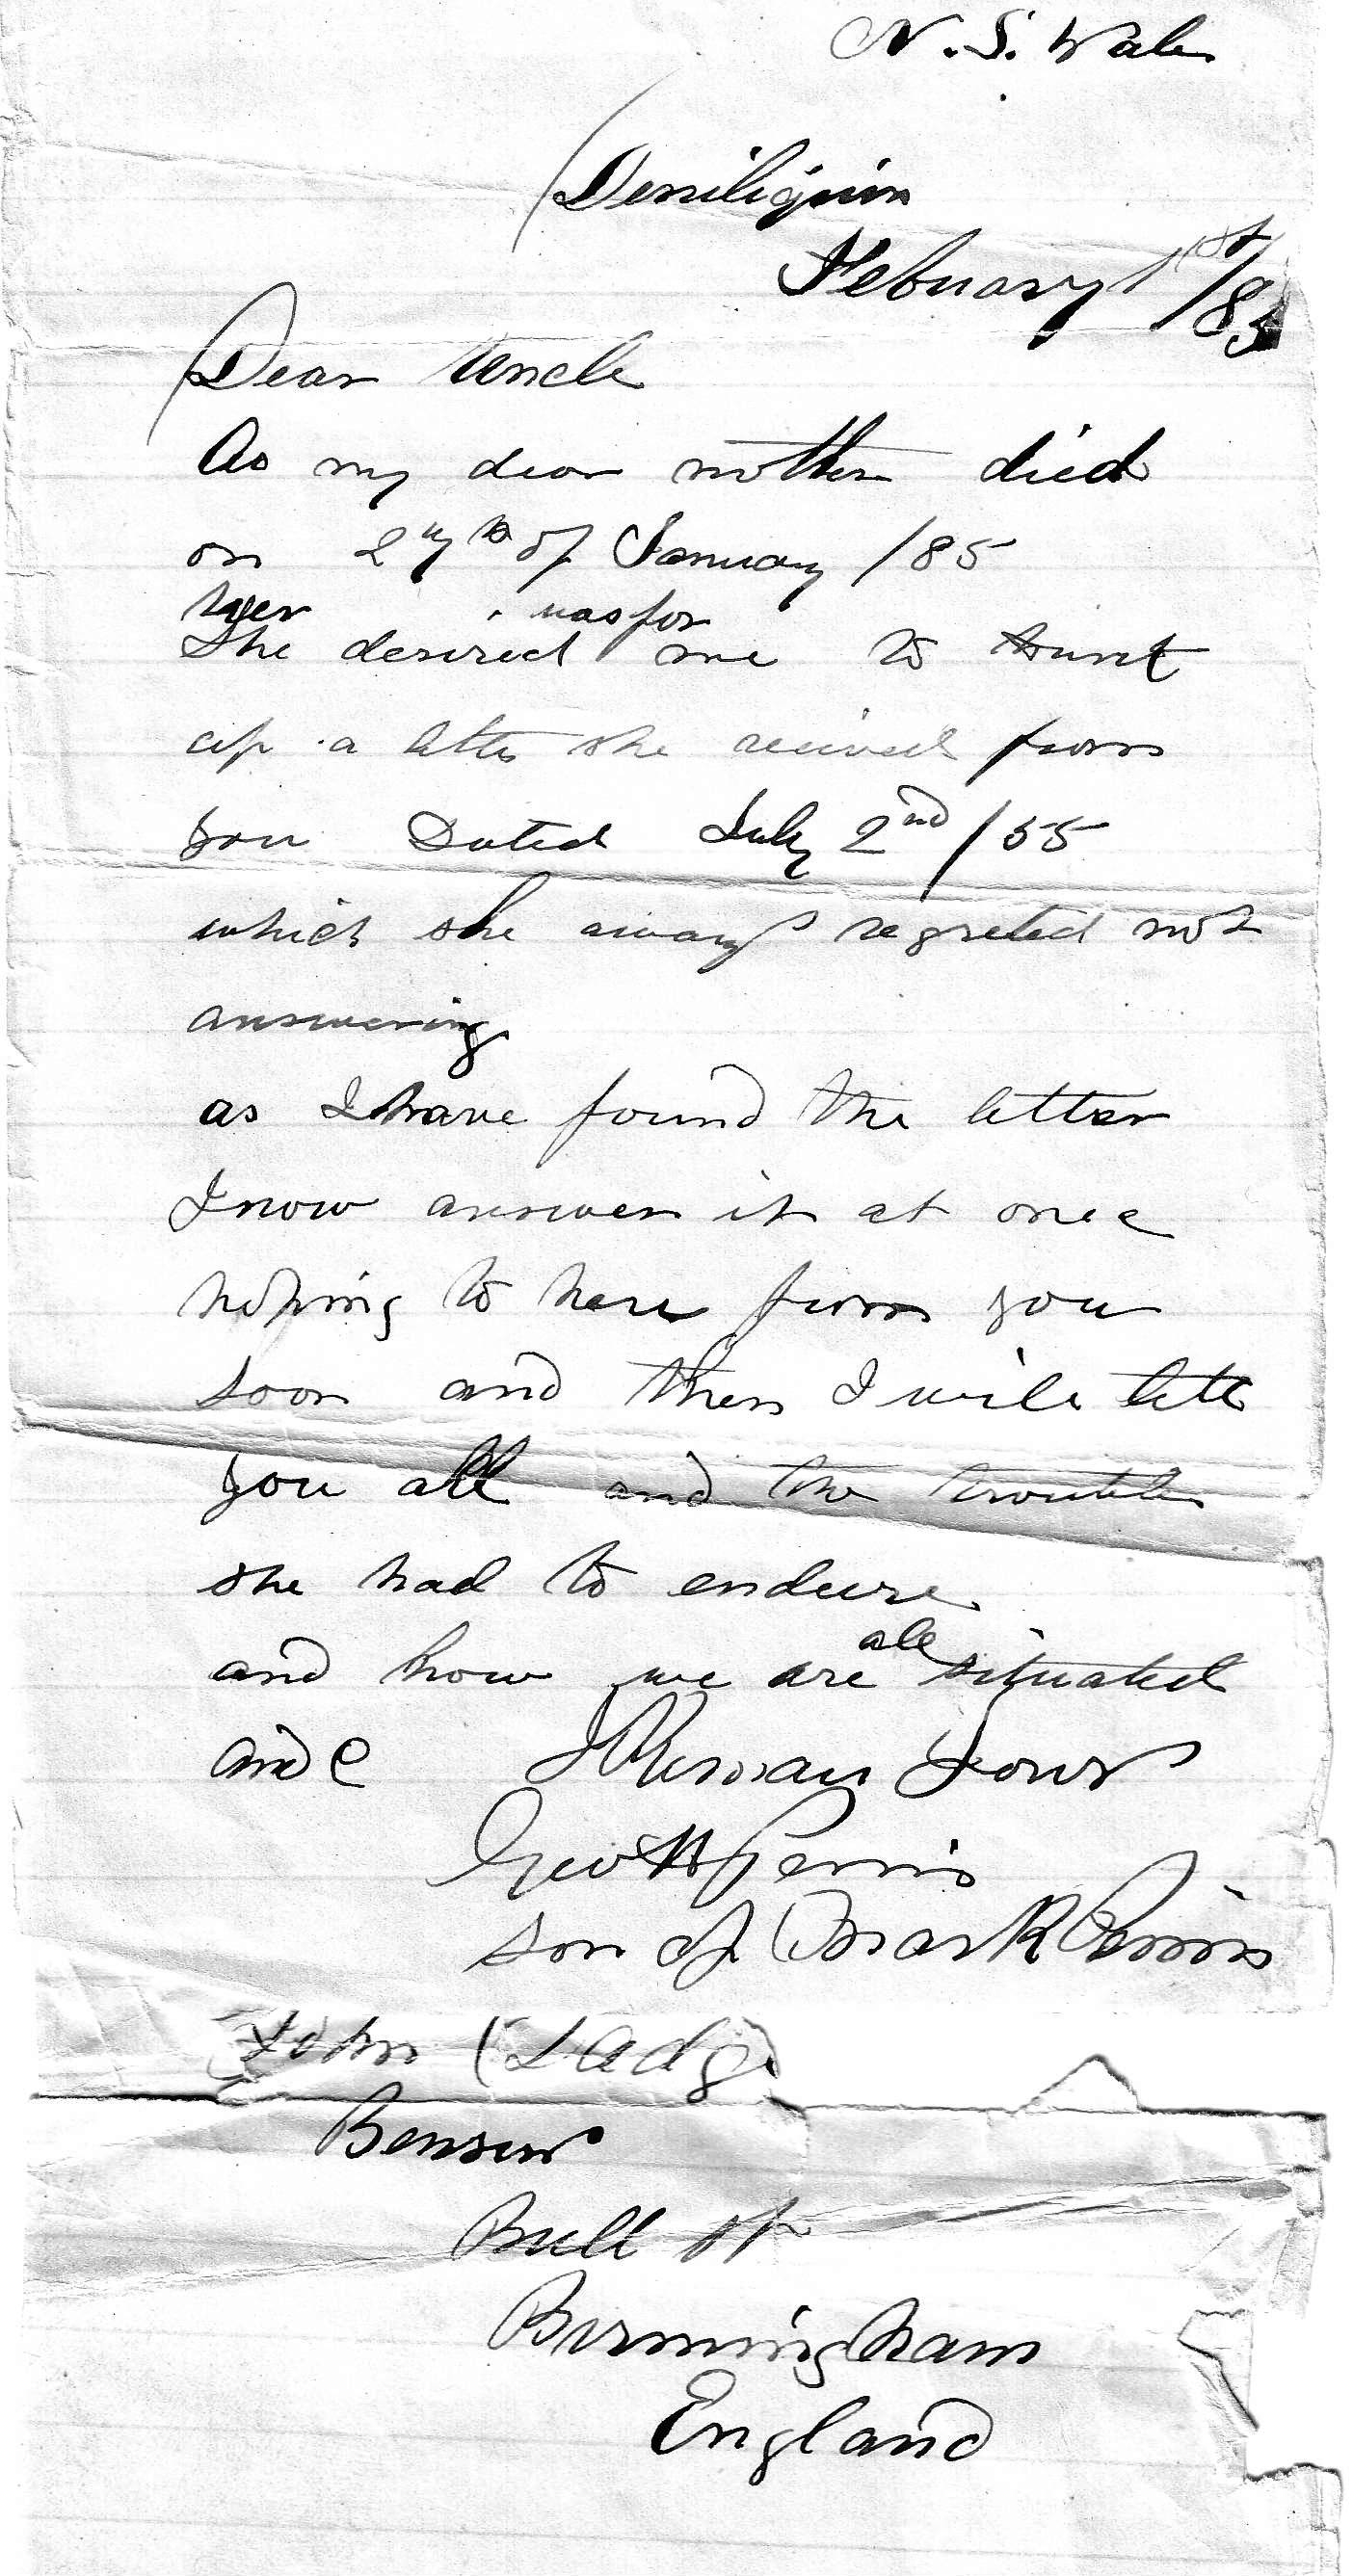 N. S. Wales
Deniliquin
Febuary 1st /85
Dear Uncle
As my dear mother died
on 27th of January /85
her was for
She desired me to hunt
up a letter she reived from
you Dated July 2nd /55
which she aways regreted not
answering
as I have found the letter
I now answer it at once
hoping to here from you
soon and then I will tell
you all and the trouble
she had to endure
all
and how we are situated
and C I Remain Yours
Geo H Perris
son of Mark Perris
John
Benson
Bull St
Birmingham
England